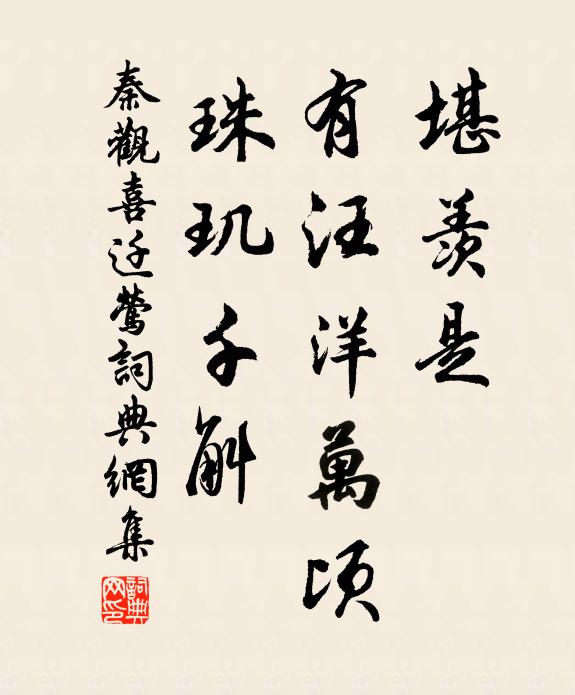 堪羨是
有汪洋萬頃
珠玑千斛
秦觀喜迁鶯詞典網集
詞典
网印